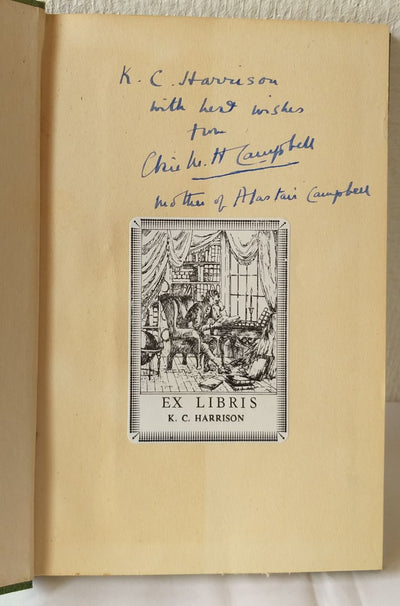 K. C. Harrison
with best wishes
from
M. H Campbell
Mother of Alastair Campbell
EX LIBRIS
K. C. HARRISON